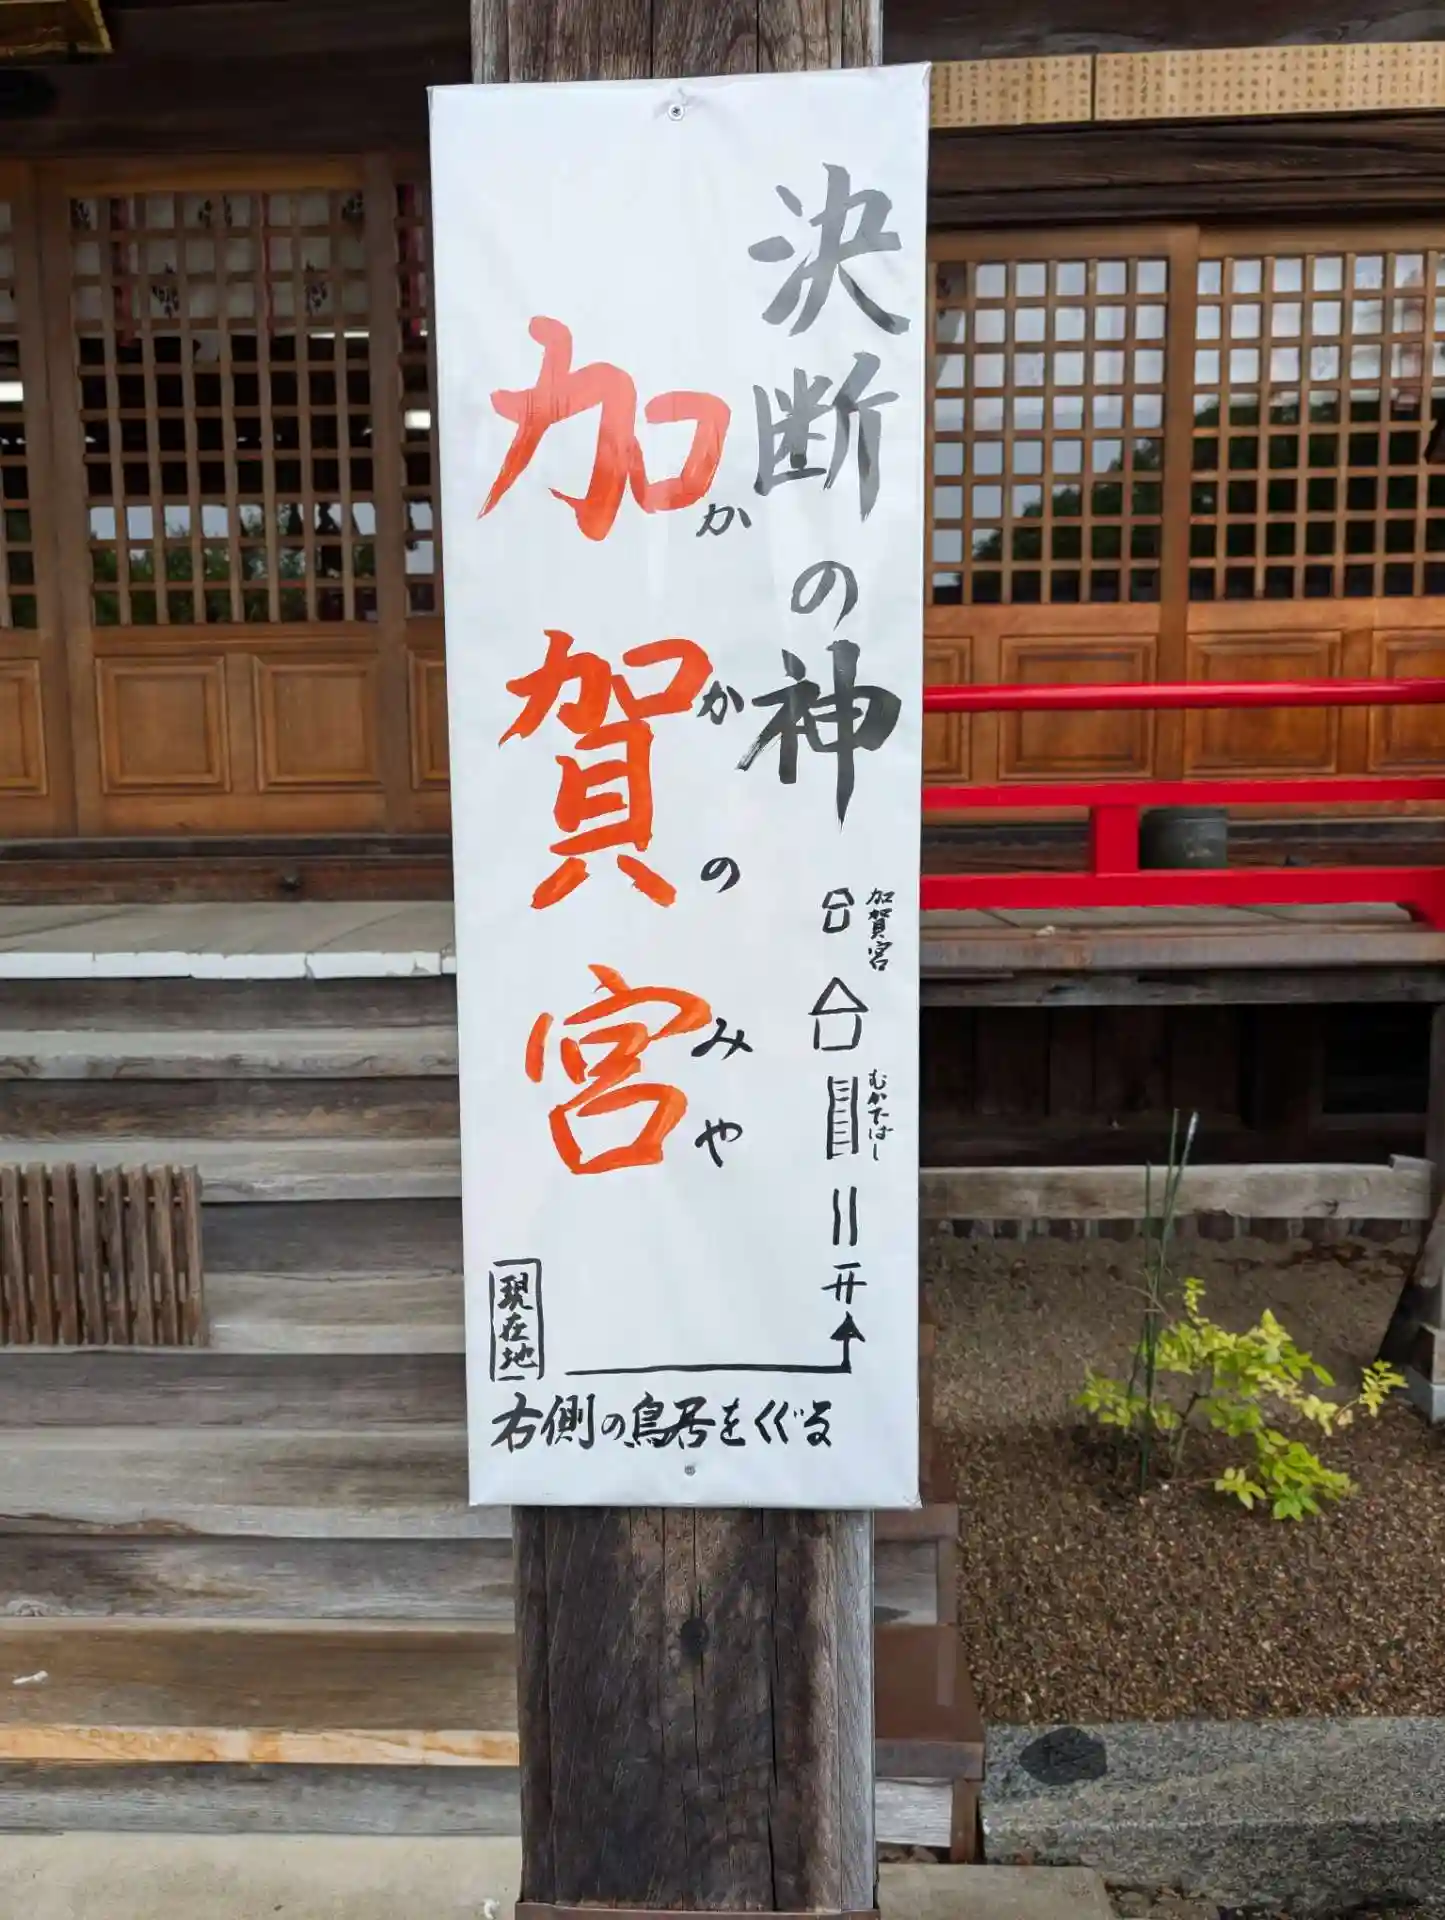 決断の神
加賀宮
かかのみや
加賀宮
むかたはし
現在地
右側の鳥居をくぐる